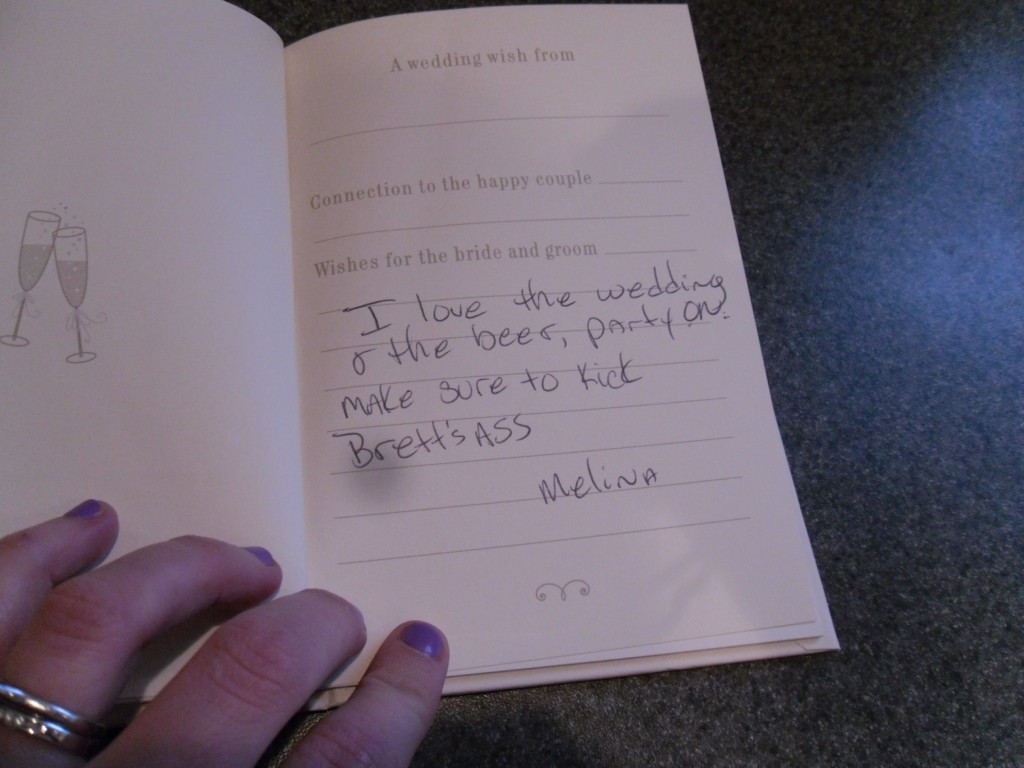 A wedding wish from
Connection to the happy couple
Wishes for the bride and groom
I love the wedding
& the beer, party on!
make sure to kick
Brett's ASS
Melina